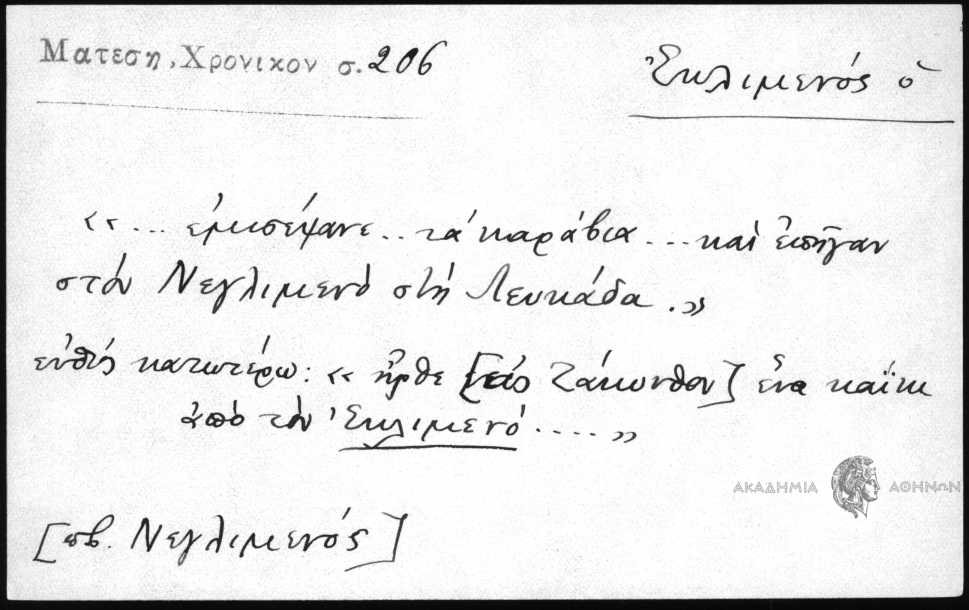 Ματεση, Χρονικον σ. 206
Ἐκλιμενός ὁ
«... ἐμισέψανε.. τά καράβια ... καί ἐπῆγαν
στόν Νεγλιμενό στή Λευκάδα.»
εὐθύς κατωτέρω: « ἦρθε [εἰς Ζάκυνθον] ἕνα καΐκι
ἀπό τόν Ἐκλιμενό ....»
[πβ. Νεγλιμενός]
ΑΚΑΔΗΜΙΑ ΑΘΗΝΩΝ